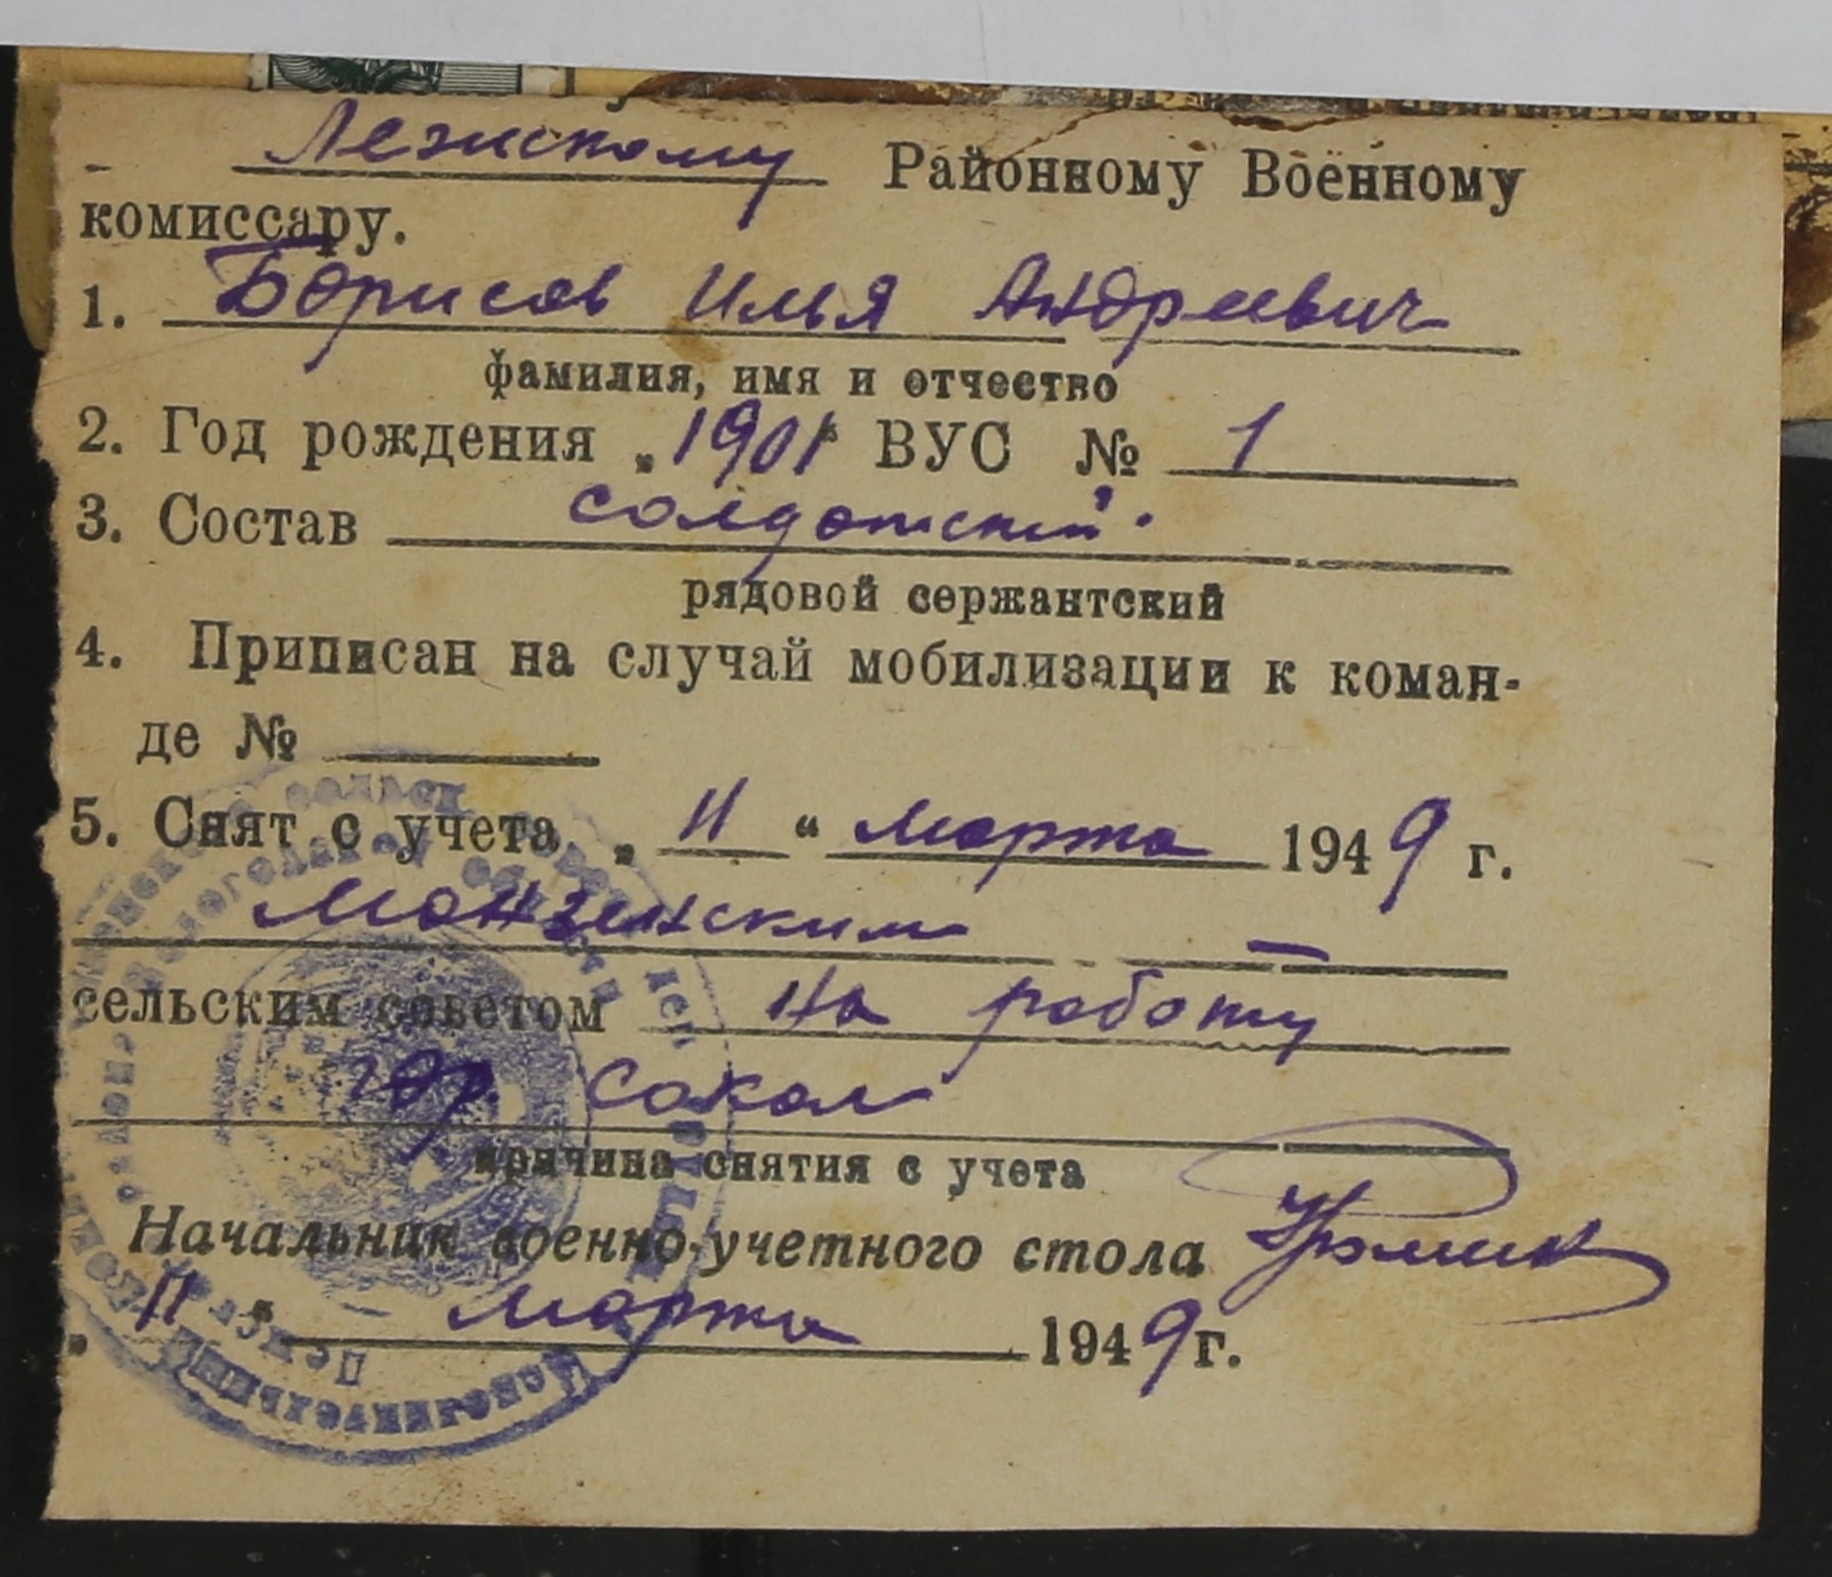 Лежскому Районному Военному
комиссару.
1. Борисов Илья Андреевич
фамилия, имя и отчество
2. Год рождения „1901“ ВУС № 1
3. Состав солдатский.
рядовой сержантский
4. Приписан на случай мобилизации к коман-
де №
5. Снят с учета „ 11 “ марта 1949 г.
Монзенским —
сельским советом на работу
гор. Сокол
причина снятия с учета
Начальник военно-учетного стола
„ 11 “ марта 1949 г.
Исполнительный